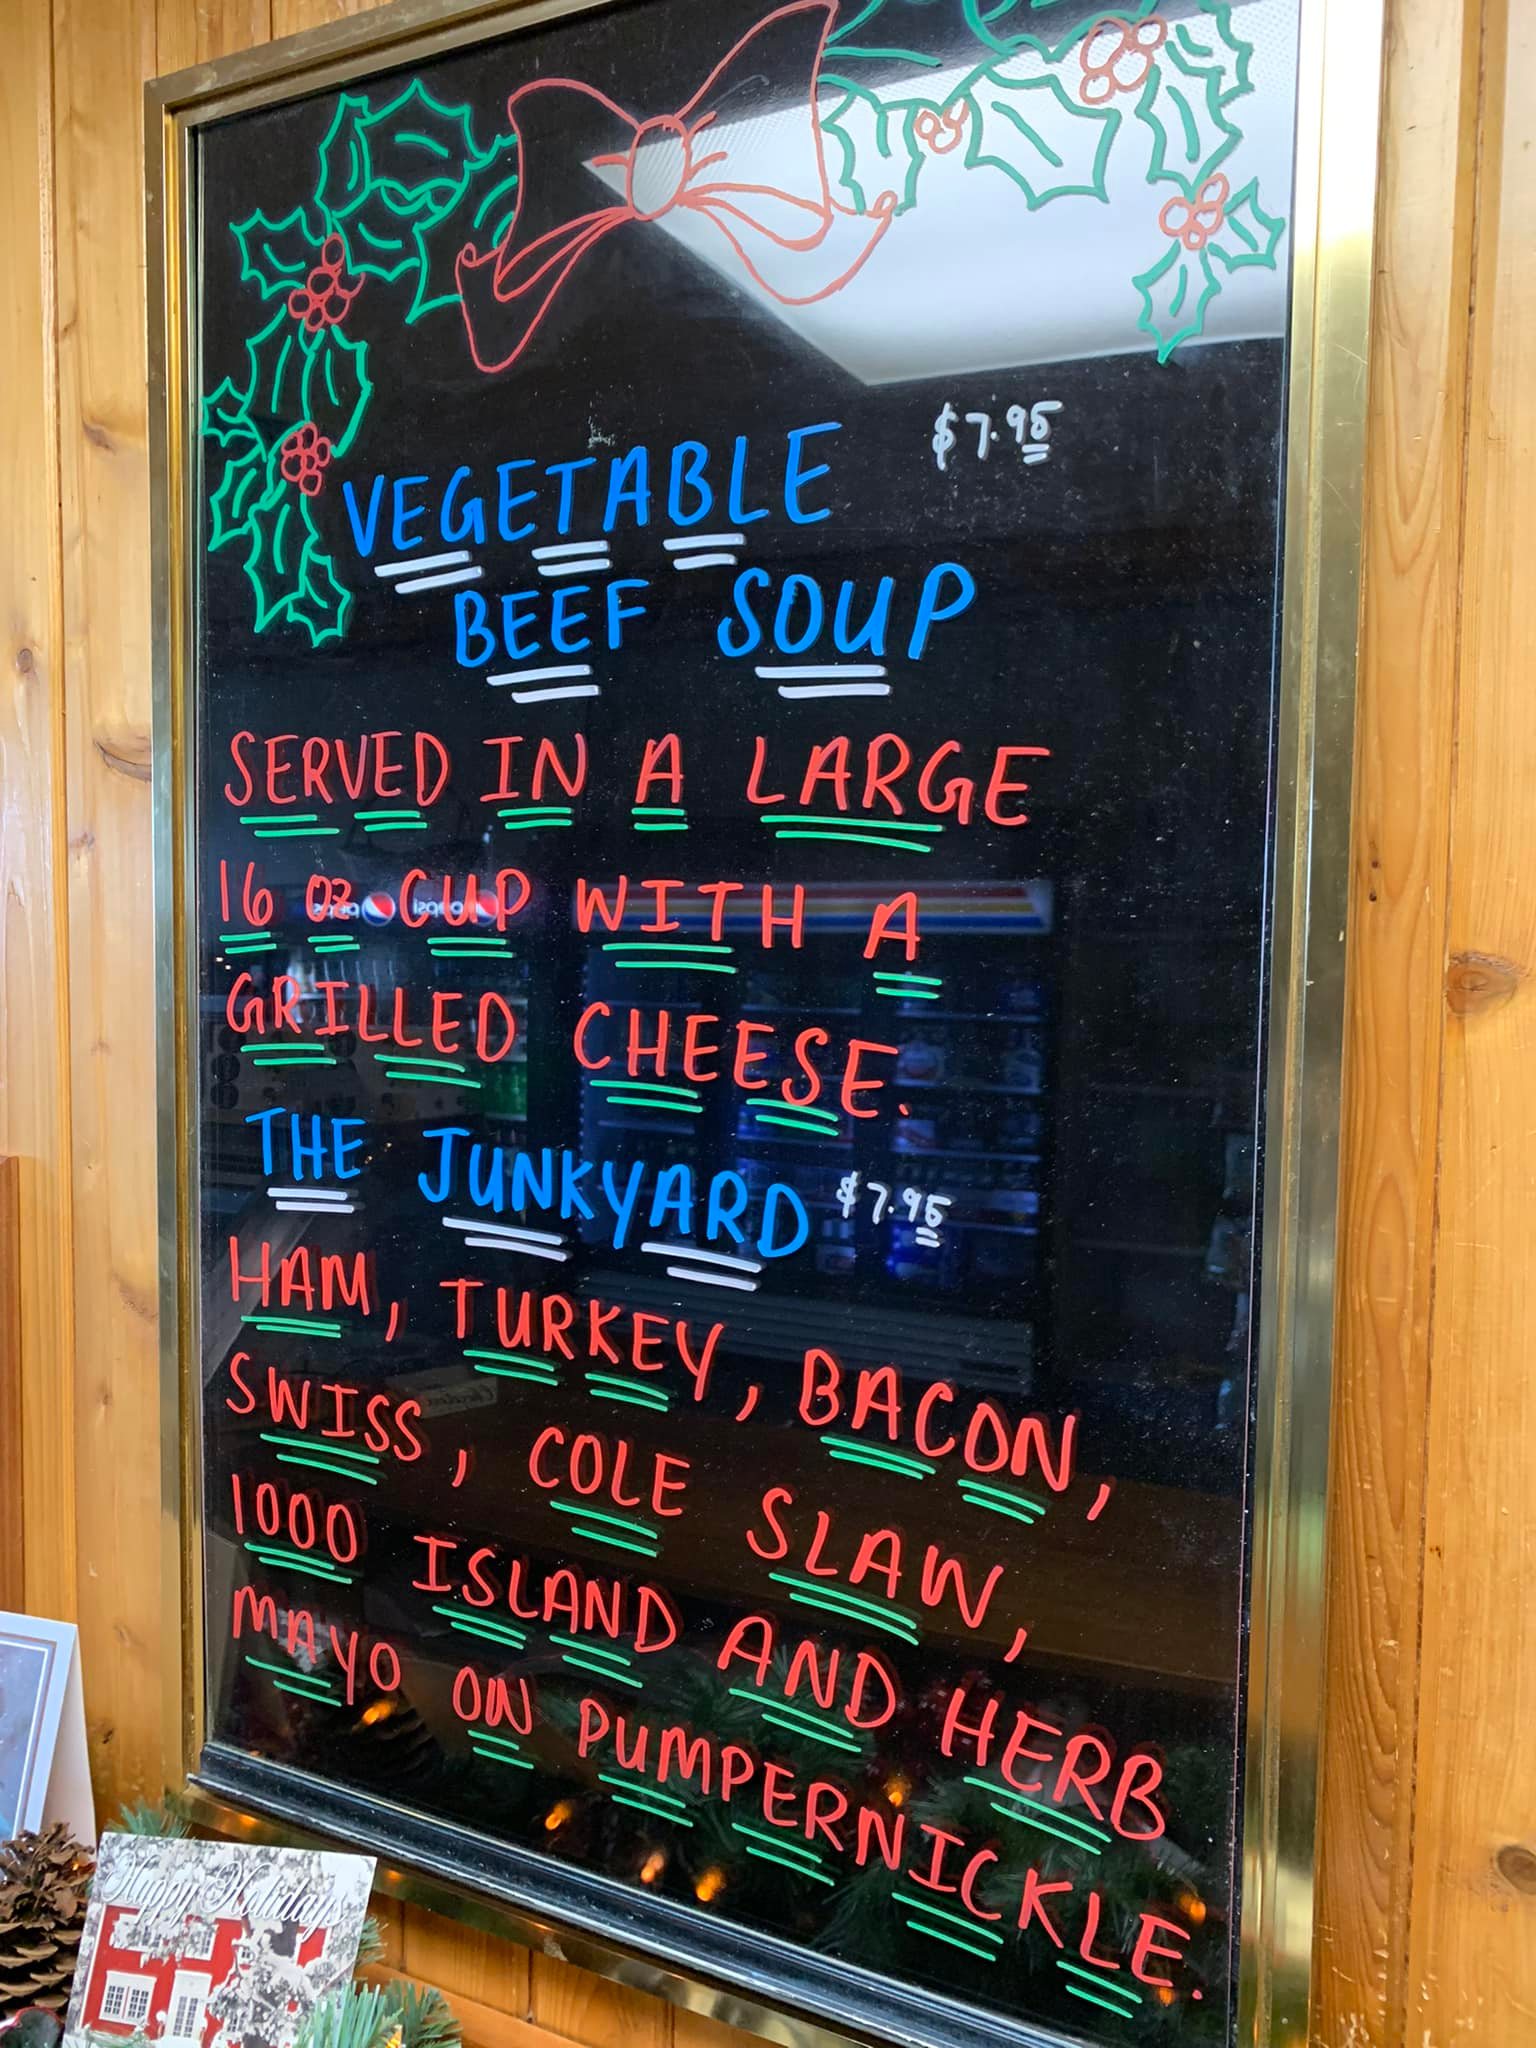 $7.95
VEGETABLE
BEEF SOUP
SERVED IN A LARGE
16 oz CUP WITH A
GRILLED CHEESE.
THE JUNKYARD $7.95
HAM, TURKEY, BACON,
SWISS, COLE SLAW,
1000 ISLAND AND HERB
MAYO ON PUMPERNICKLE.
pepsi pepsi
Happy Holidays